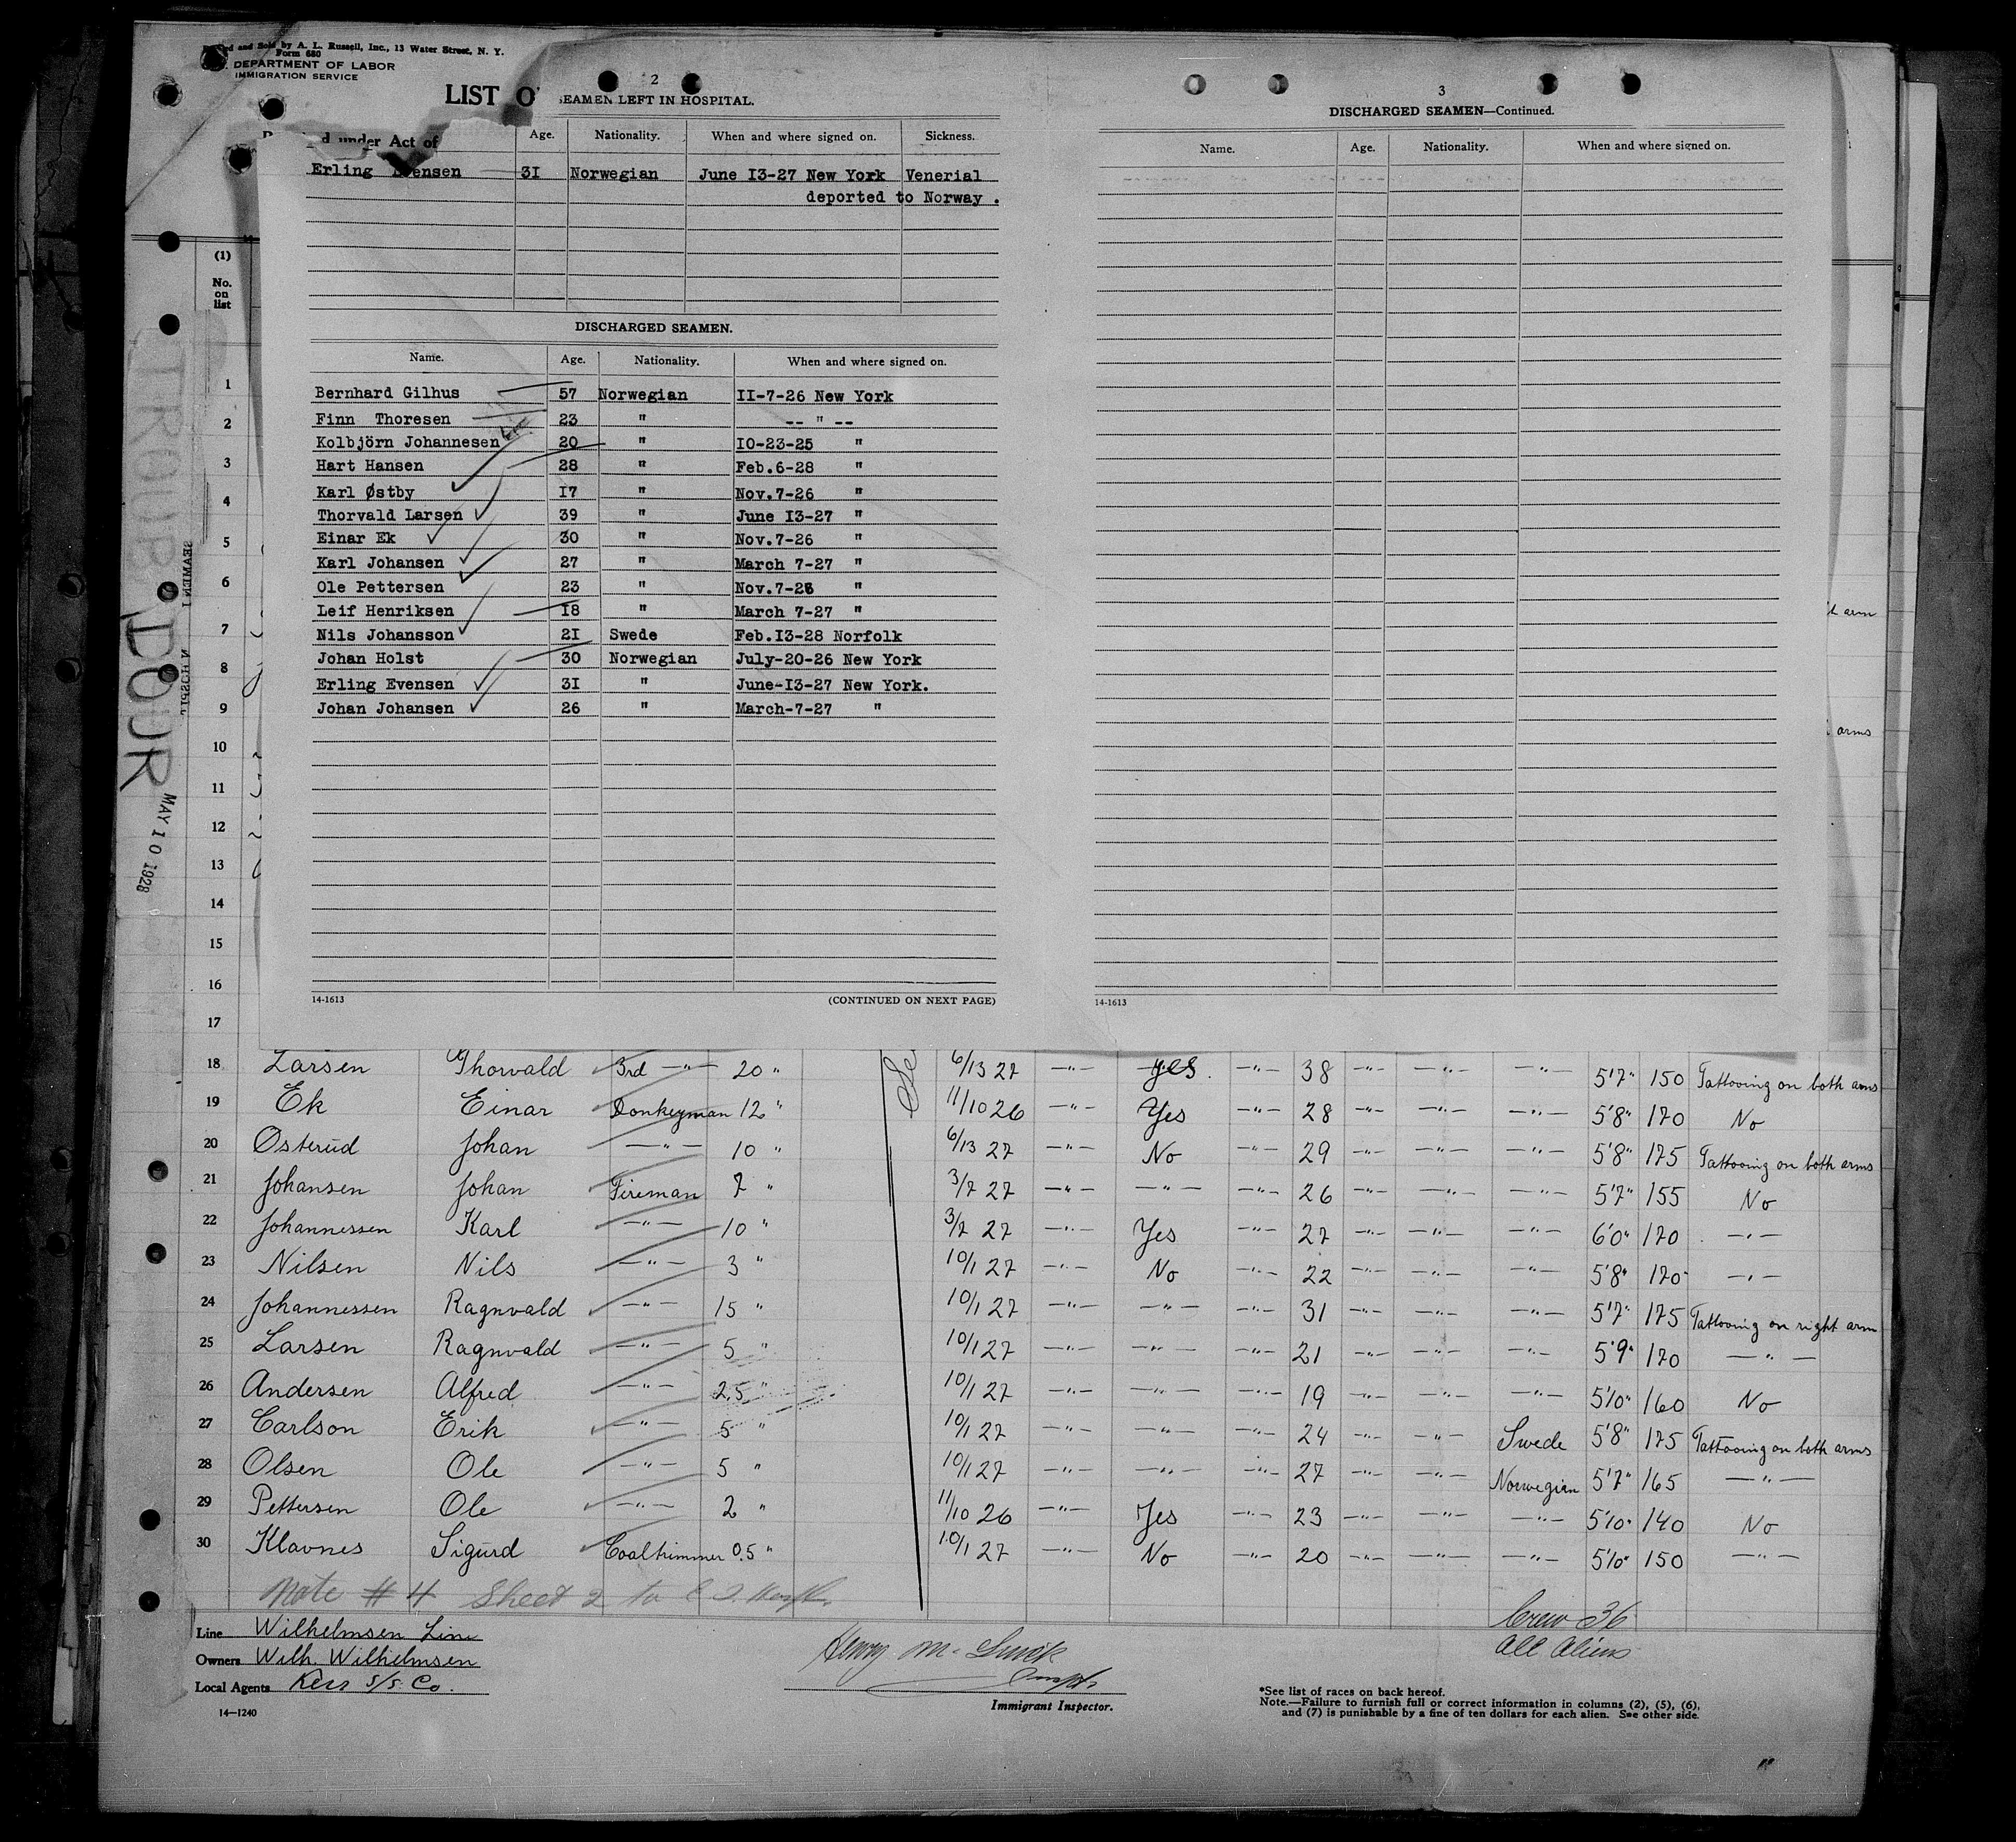 by A. L. Russell, Inc., 13 Water Street, N. Y.
Form 680
DEPARTMENT OF LABOR
IMMIGRATION SERVICE
LIST O
under Act of
(1)
No. on list
MAY 10 1928
2
SEAMEN LEFT IN HOSPITAL.
Age. Nationality. When and where signed on. Sickness.
Erling Evensen 3I Norwegian June I3-27 New York Venerial
deported to Norway .
DISCHARGED SEAMEN.
Name. Age. Nationality. When and where signed on.
Bernhard Gilhus 57 Norwegian II-7-26 New York
Finn Thoresen 23 " -- " --
Kolbjörn Johannesen 20 " I0-23-25 "
Hart Hansen 28 " Feb.6-28 "
Karl Østby I7 " Nov.7-26 "
Thorvald Larsen 39 " June I3-27 "
Einar Ek 30 " Nov.7-26 "
Karl Johansen 27 " March 7-27 "
Ole Pettersen 23 " Nov.7-26 "
Leif Henriksen I8 " March 7-27 "
Nils Johansson 2I Swede Feb.I3-28 Norfolk
Johan Holst 30 Norwegian July-20-26 New York
Erling Evensen 3I " June-I3-27 New York.
Johan Johansen 26 " March-7-27 "
14-1613 (CONTINUED ON NEXT PAGE)
3
DISCHARGED SEAMEN—Continued.
Name. Age. Nationality. When and where signed on.
14-1613
arm
arms
1
2
3
4
5
6
7
8
9
10
11
12
13
14
15
16
17
18 Larsen Thorvald 3rd —"— 20 " 6/13 27 —"— yes —"— 38 —"— —"— —"— 5'7" 150 Tattooing on both arms
19 Ek Einar Donkeyman 12 " 11/10 26 —"— Yes —"— 28 —"— —"— —"— 5'8" 170 No
20 Østerud Johan —"— 10 " 6/13 27 —"— No —"— 29 —"— —"— —"— 5'8" 175 Tattooing on both arms
21 Johansen Johan Fireman 7 " 3/7 27 —"— —"— —"— 26 —"— —"— —"— 5'7" 155 No
22 Johannessen Karl —"— 10 " 3/7 27 —"— Yes —"— 27 —"— —"— —"— 6'0" 170 —"—
23 Nilsen Nils —"— 3 " 10/1 27 —"— No —"— 22 —"— —"— —"— 5'8" 170 —"—
24 Johannessen Ragnvald —"— 15 " 10/1 27 —"— —"— —"— 31 —"— —"— —"— 5'7" 175 Tattooing on right arm
25 Larsen Ragnvald —"— 5 " 10/1 27 —"— —"— —"— 21 —"— —"— —"— 5'9" 170 —"—
26 Andersen Alfred —"— 2,5 " 10/1 27 —"— —"— —"— 19 —"— —"— —"— 5'10" 160 No
27 Carlson Erik —"— 5 " 10/1 27 —"— —"— —"— 24 —"— —"— Swede 5'8" 175 Tattooing on both arms
28 Olsen Ole —"— 5 " 10/1 27 —"— —"— —"— 27 —"— —"— Norwegian 5'7" 165 —"—
29 Pettersen Ole —"— 2 " 11/10 26 —"— Yes —"— 23 —"— —"— —"— 5'10" 140 No
30 Klavnes Sigurd Coaltrimmer 0.5 " 10/1 27 —"— No —"— 20 —"— —"— —"— 5'10" 150 —"—
Note # 4 Sheet 2 to
Crew 36
All Aliens
Line Wilhelmsen Line
Owners Wilh. Wilhelmsen
Local Agents Kerr S/S. Co.
14—1240
Henry M.
Immigrant Inspector.
*See list of races on back hereof.
Note.—Failure to furnish full or correct information in columns (2), (5), (6),
and (7) is punishable by a fine of ten dollars for each alien. See other side.